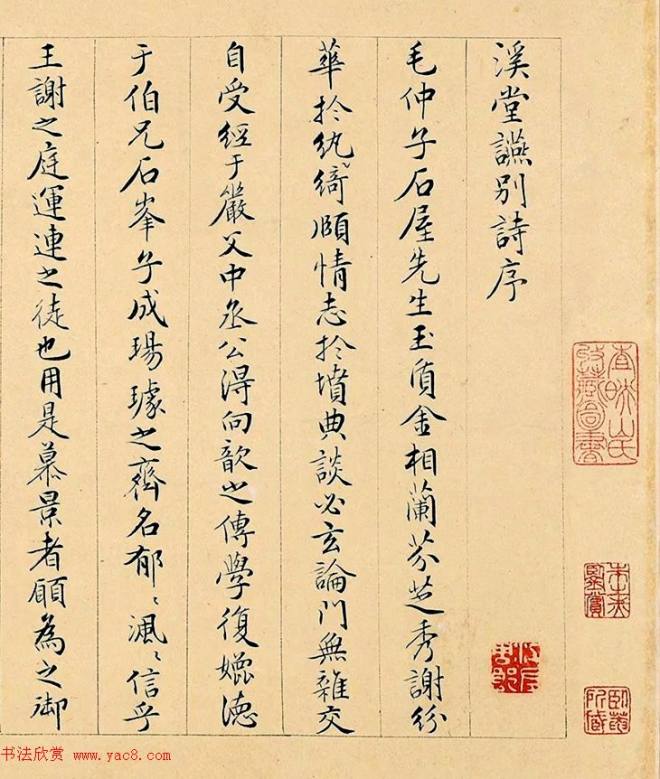 溪堂讌別詩序
毛仲子石屋先生玉質金相蘭芬芝秀謝紛
華於紈綺頤情志於墳典談必玄論門無雜交
自受經于嚴父中丞公得向歆之傳學復孅德
于伯兄石峯子成瑒璩之齊名郁〻渢〻信乎
王謝之庭運連之徒也用是慕景者願為之御
書法欣赏 www.yac8.com